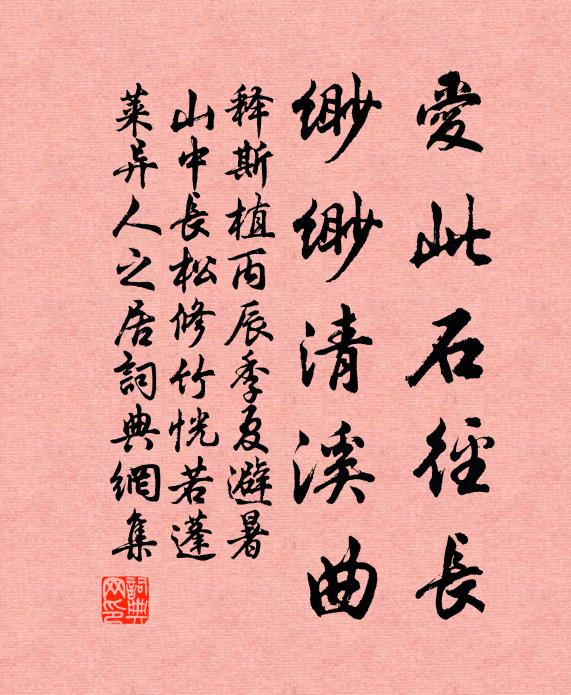 愛此石徑長
緲緲清溪曲
释斯植丙辰季夏避暑
山中長松修竹恍若蓬
莱异人之居詞典網集
詞典
网印